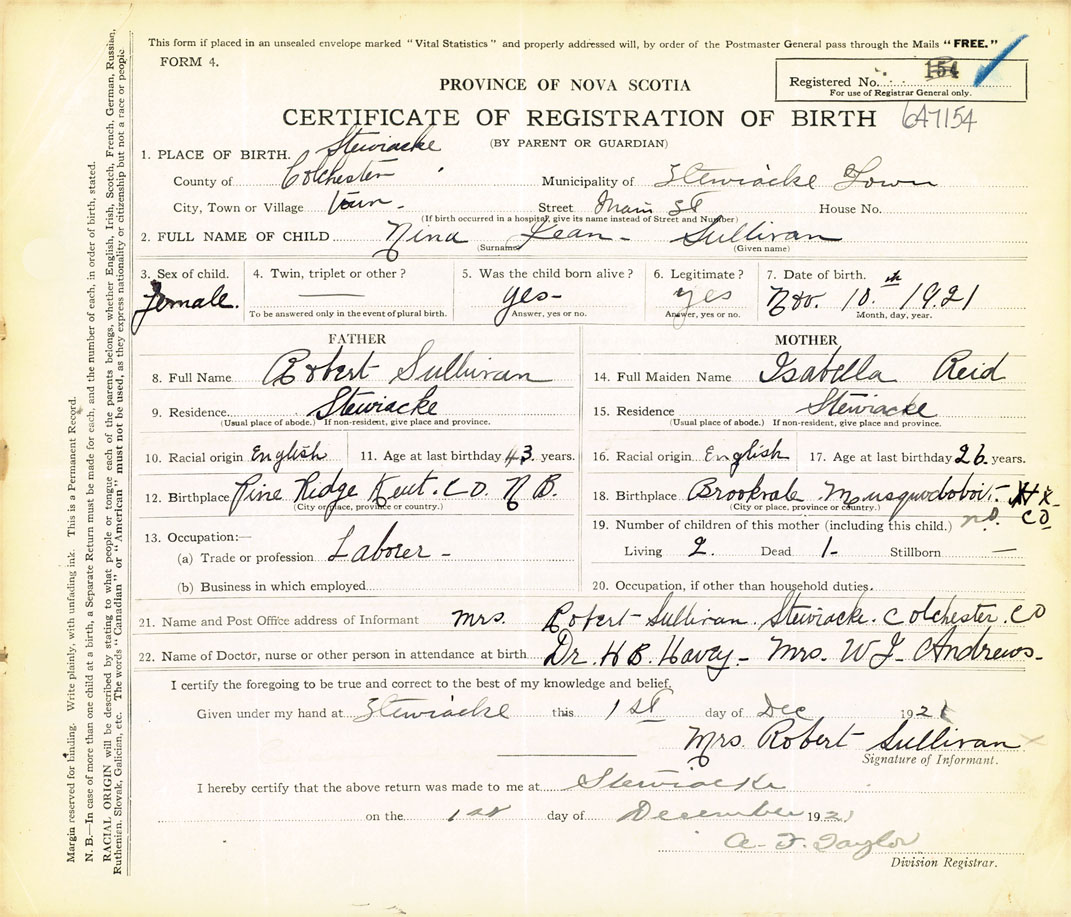 This form if placed in an unsealed envelope marked "Vital Statistics" and properly addressed will, by order of the Postmaster General pass through the Mails "FREE."
FORM 4.
Registered No. 154
For use of Registrar General only.
PROVINCE OF NOVA SCOTIA
CERTIFICATE OF REGISTRATION OF BIRTH 647154
(BY PARENT OR GUARDIAN)
1. PLACE OF BIRTH. Stewiacke
County of Colchester Municipality of Stewiacke Town
City, Town or Village Town. Street Main St House No.
(If birth occurred in a hospital, give its name instead of Street and Number)
2. FULL NAME OF CHILD Nina Jean - Sullivan
(Surname) (Given name)
3. Sex of child. 4. Twin, triplet or other? 5. Was the child born alive? 6. Legitimate? 7. Date of birth.
female. — yes- yes Nov. 10th 1921
To be answered only in the event of plural birth. Answer, yes or no. Answer, yes or no. Month, day, year.
FATHER
8. Full Name Robert Sullivan
9. Residence Stewiacke
(Usual place of abode.) If non-resident, give place and province.
10. Racial origin English 11. Age at last birthday 43. years.
12. Birthplace Pine Ridge Kent. CO. N B.
(City or place, province or country.)
13. Occupation:—
(a) Trade or profession Laborer -
(b) Business in which employed
MOTHER
14. Full Maiden Name Isabella Reid
15. Residence Stewiacke
(Usual place of abode.) If non-resident, give place and province.
16. Racial origin English 17. Age at last birthday 26. years.
18. Birthplace Brookvale Musquodoboit- Hx CO
(City or place, province or country.)
19. Number of children of this mother (including this child.)
Living 2. Dead 1- Stillborn —
20. Occupation, if other than household duties.
21. Name and Post Office address of Informant Mrs. Robert Sullivan. Stewiacke. Colchester. CO
22. Name of Doctor, nurse or other person in attendance at birth Dr. H B. Havey - Mrs. W J- Andrews-
I certify the foregoing to be true and correct to the best of my knowledge and belief.
Given under my hand at Stewiacke this 1st day of Dec 1921
Mrs. Robert Sullivan x
Signature of Informant.
I hereby certify that the above return was made to me at Stewiacke
on the 1st day of December 1921
A. F. Taylor
Division Registrar.
Margin reserved for binding. Write plainly, with unfading ink. This is a Permanent Record.
N. B.—In case of more than one child at a birth, a Separate Return must be made for each, and the number of each, in order of birth, stated.
RACIAL ORIGIN will be described by stating to what people or tongue each of the parents belongs, whether English, Irish, Scotch, French, German, Russian,
Ruthenian, Slovak, Galician, etc. The words "Canadian" or "American" must not be used, as they express nationality or citizenship but not a race or people